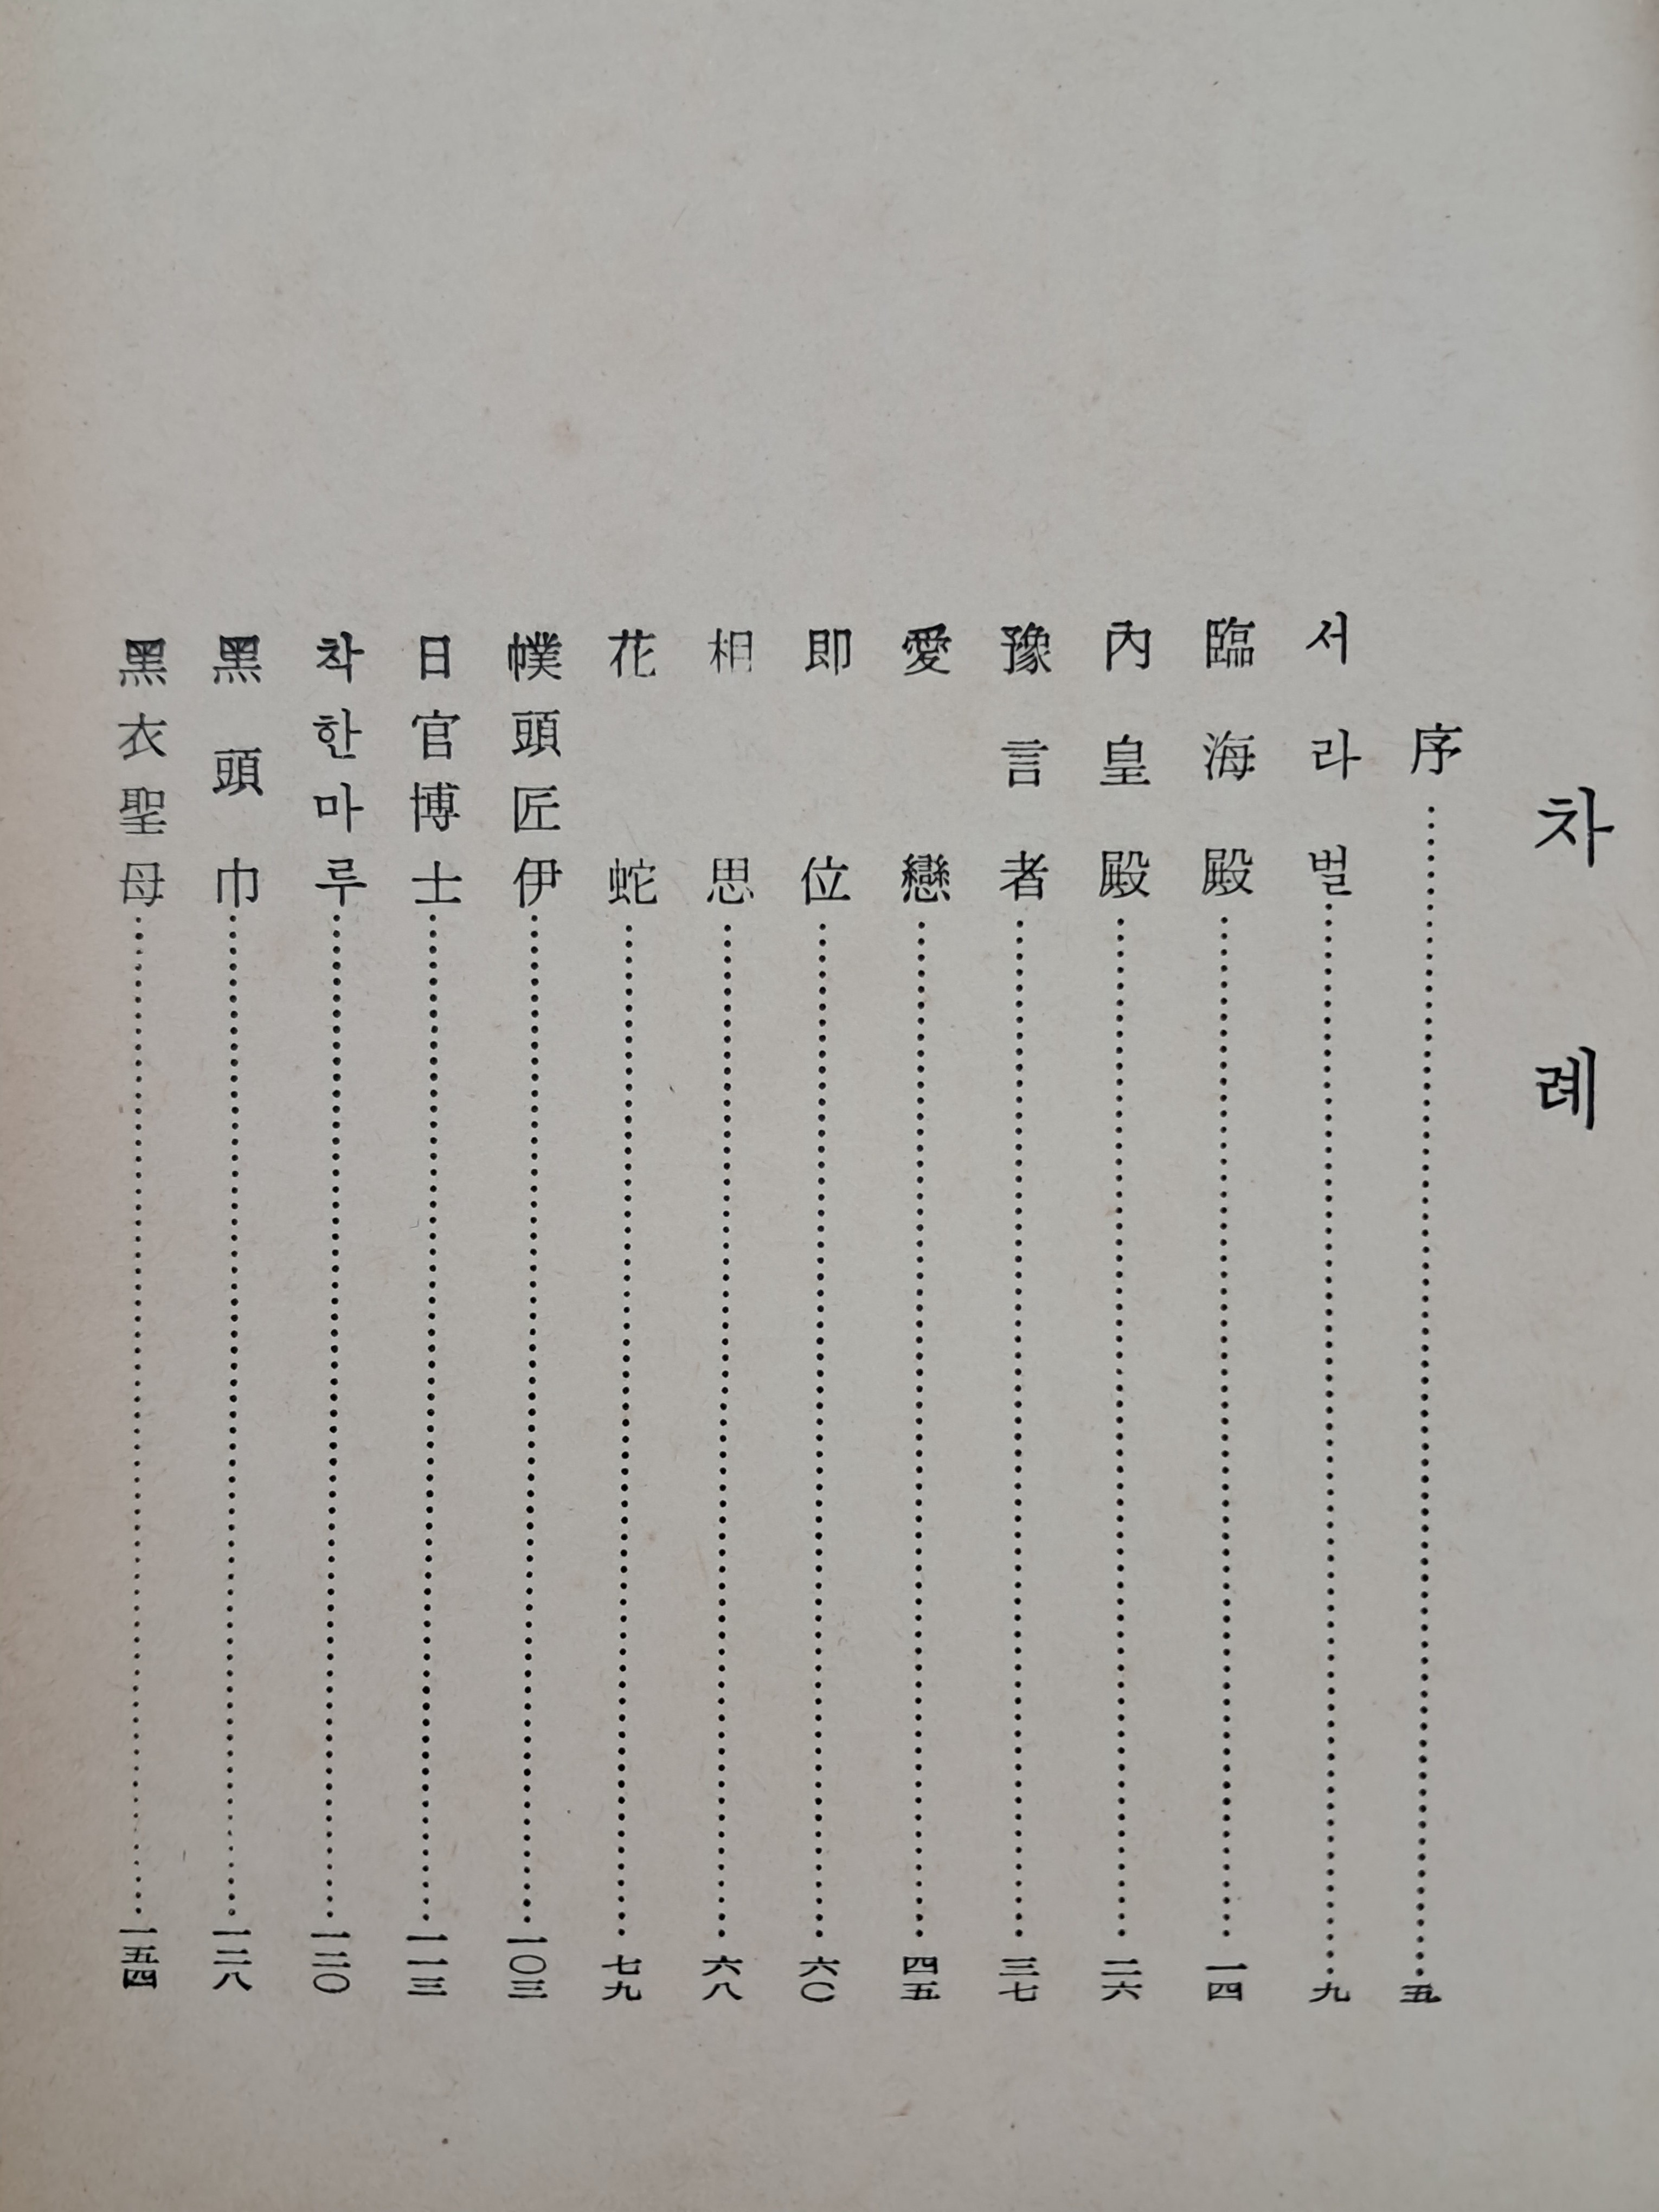 차례
序……五
서라벌……九
臨海殿……一四
內皇殿……二六
豫言者……三七
愛戀……四五
即位……六〇
相思……六八
花蛇……七九
幞頭匠伊……一〇三
日官博士……一一三
착한마루……一二〇
黑頭巾……一二八
黑衣聖母……一五四